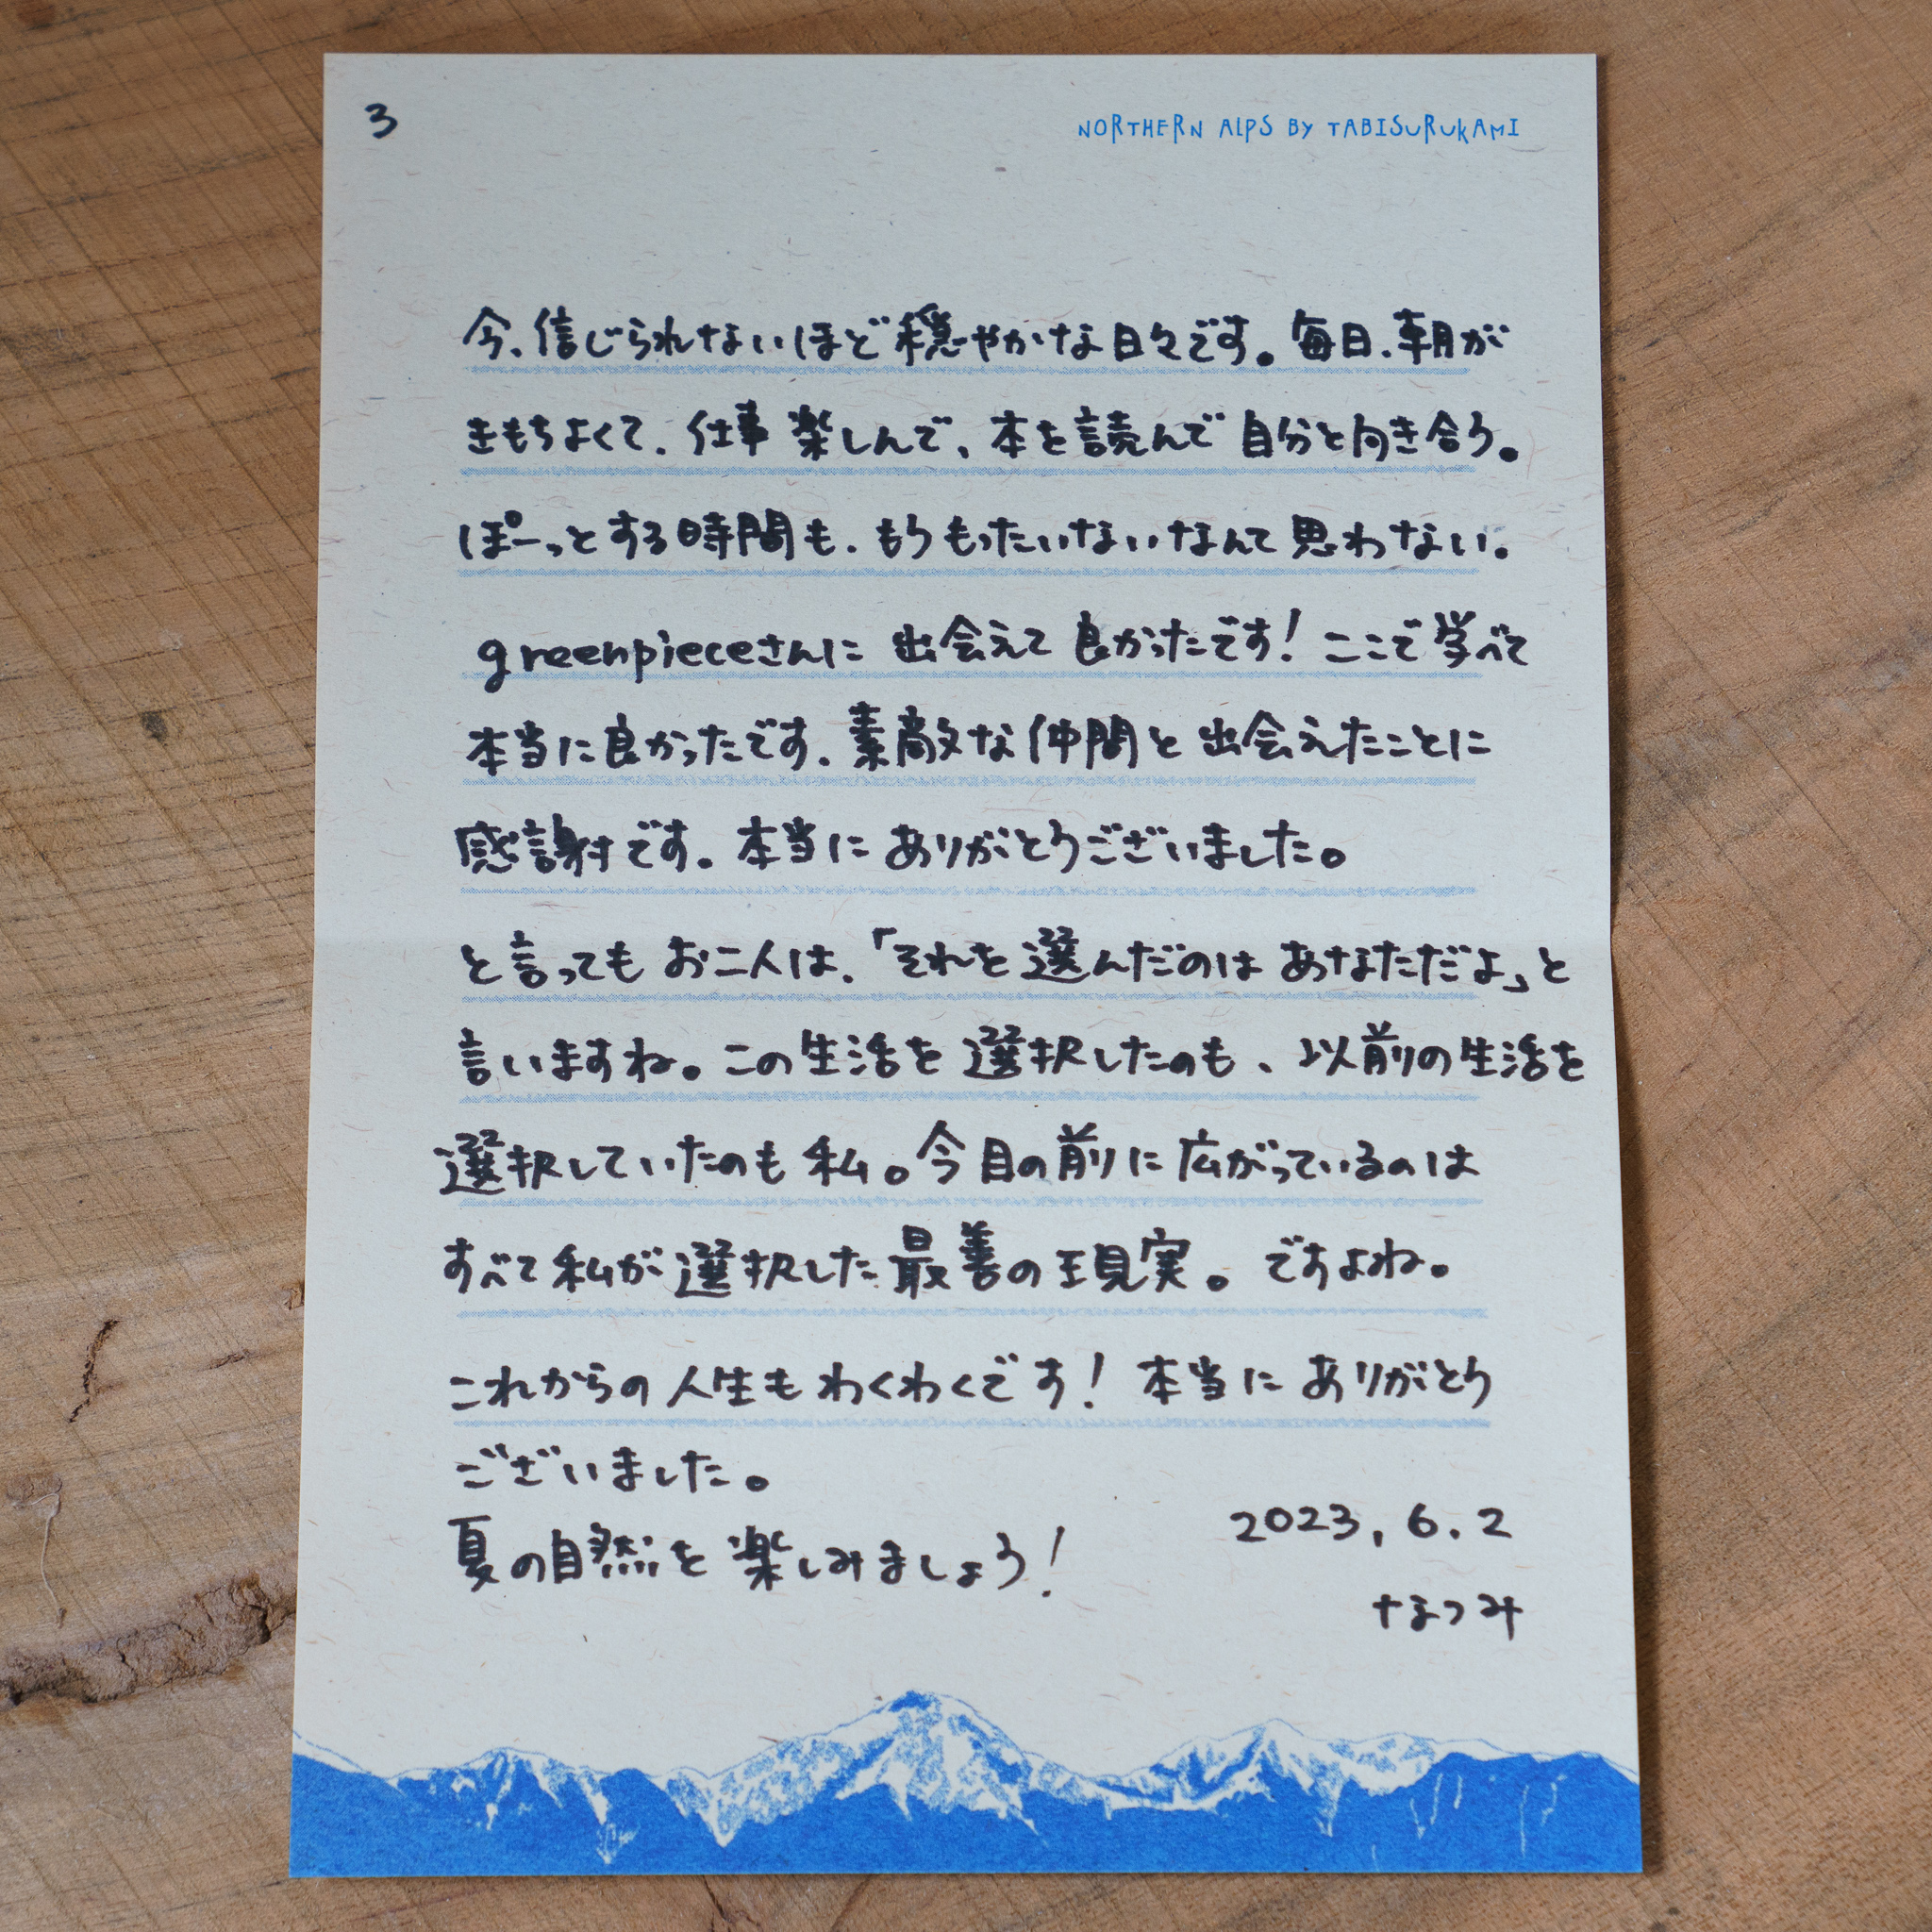 3
NORTHERN ALPS BY TABISURUKAMI
今、信じられないほど穏やかな日々です。毎日、朝が
きもちよくて、仕事楽しんで、本を読んで自分と向き合う。
ぽーっとする時間も、もうもったいないなんて思わない。
greenpieceさんに出会えて良かったです！ここで学べて
本当に良かったです。素敵な仲間と出会えたことに
感謝です。本当にありがとうございました。
と言ってもお二人は、「それを選んだのはあなただよ」と
言いますね。この生活を選択したのも、以前の生活を
選択していたのも私。今目の前に広がっているのは
すべて私が選択した最善の現実。ですよね。
これからの人生もわくわくです！本当にありがとう
ございました。
夏の自然を楽しみましょう！
2023,6.2
なつみ